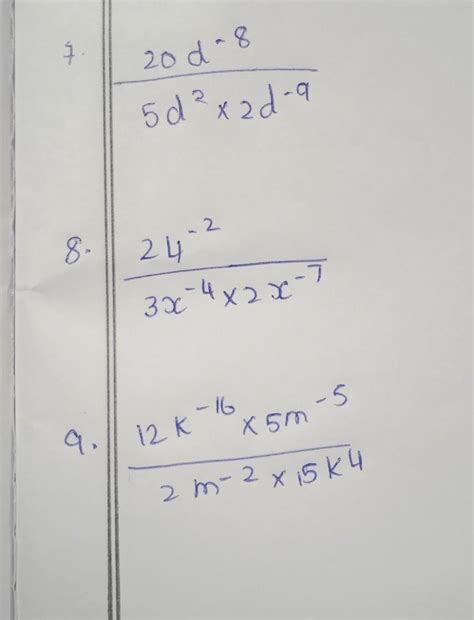 7. 20d⁻⁸
5d² × 2d⁻⁹
8. 24⁻²
3x⁻⁴ × 2x⁻⁷
9. 12k⁻¹⁶ × 5m⁻⁵
2m⁻² × 15k4